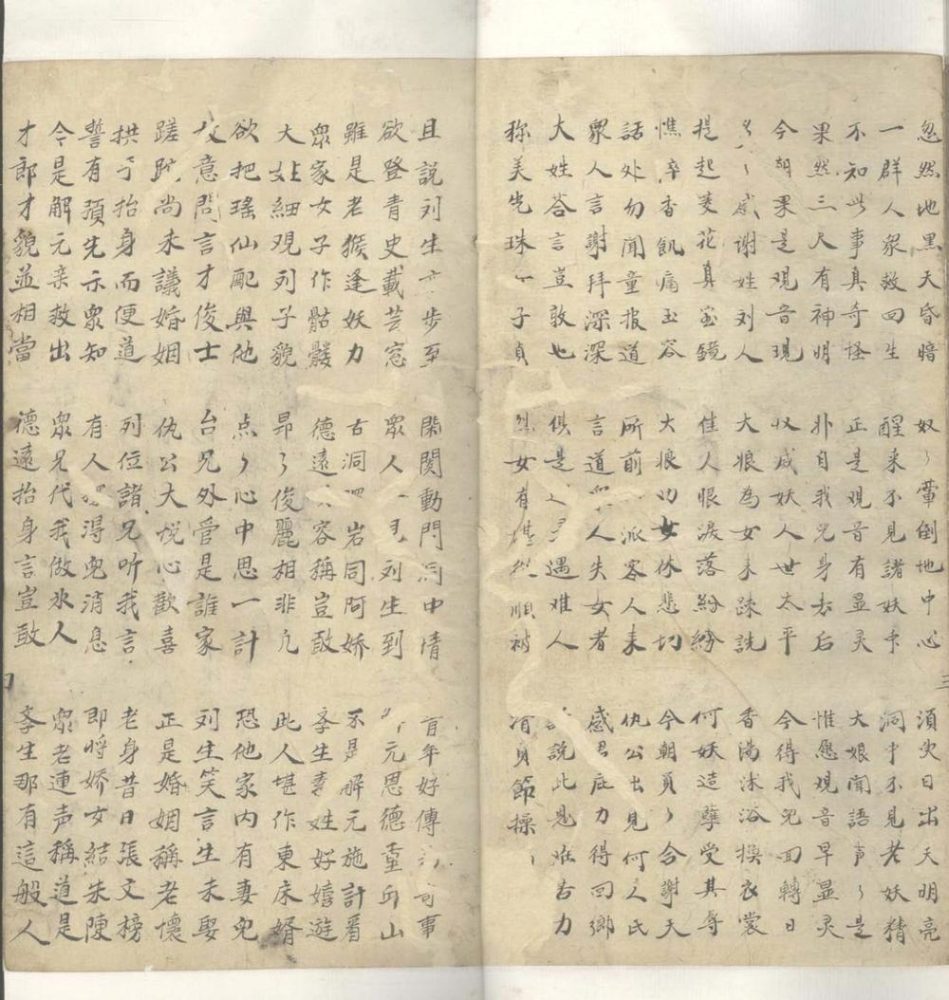 忽然地黑天昏暗 奴々暈倒地中心 須臾日出天明亮
一群人衆救回生 醒来不見諸妖 洞中不見老妖精
不知此事真奇怪 正是观音有显灵 大娘聞語声々是
果然三尺有神明 非自我兒身去后 惟愿观音早显灵
今朝果是观音現 收成妖人世太平 今得我兒回轉日
々々感谢姓刘人 大娘為女未疎説 香湯沐浴換衣裳
提起菱花真宝鏡 佳人恨淚落紛紛 何妖造孽受其辱
憔悴香肌痛玉容 大娘功女休悲切 今朝員々合謝天
話处勿闻童报道 所前 派容人来 仇公出見何人氏
衆人言謝拜深深 言道衆人失女者 感君庇力得回鄉
大姓答言豈敢也 俱是 遇难人 說此恩 力
称美先珠 子貞 女有 顺被 有貞節操
且說列生 步至 閑閱動門洞中情 百年好傳 司事
欲登青史載芸窓 衆人 見列生到 元恩德重邱山
雖是老猴逢妖力 古洞 岩同阿嬌 不是解元施計看
衆家女子作骷髏 德遠 容稱豈敢 李生妻姓好嬉遊
大姓細观列子貌 昂々俊麗相非凡 此人堪作東床婿
欲把瑤仙配與他 点々心中思一計 恐他家内有妻兒
友意問言才俊士 台兄外管是誰家 列生笑言生未娶
蹉跎尚未議婚姻 仇公大悦心歡喜 正是婚姻稱老懷
拱手抬身而便道 列位諸兄听我言 老身昔日張文榜
誓有預先示衆知 有人 得兒消息 即將娇女結朱陳
令是解元亲救出 衆兄代我做氷人 衆老連声稱道是
才郎才貌並相當 德遠抬身言豈敢 李生那有這般人